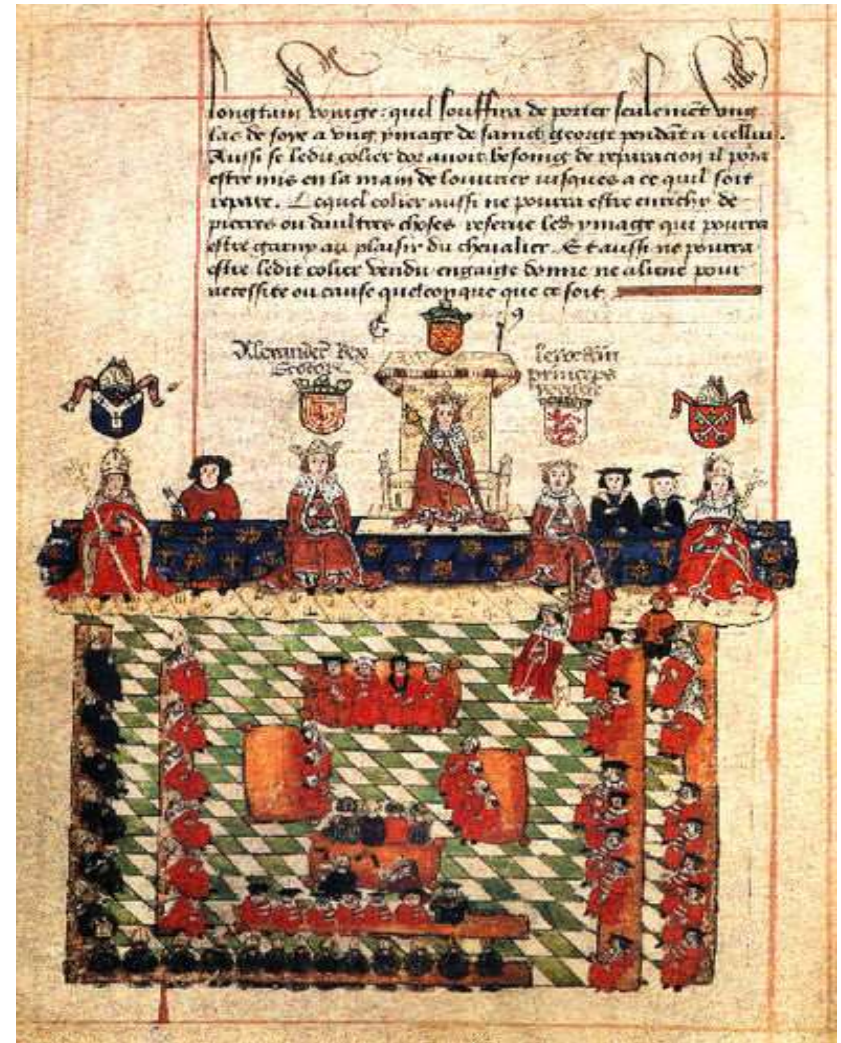 longtain voiage: quil souffira de porter seulemēt ung
lac de soye a ung ymage de sainct george pendāt a icelluy.
Aussi se ledit colier dor avoit besoing de reparacion il pora
estre mis en la main de louvrier iusques a ce quil soit
repare. Lequel colier aussi ne pourra estre enrichy de
pierres ou daultres choses reserve led ymage qui pourra
estre garny au plaisir du chevalier. Et aussi ne pourra
estre ledit colier vendu engaige donne ne aliene pour
necessite ou cause quelconque que ce soit
Alexander Rex
Scotor
princeps